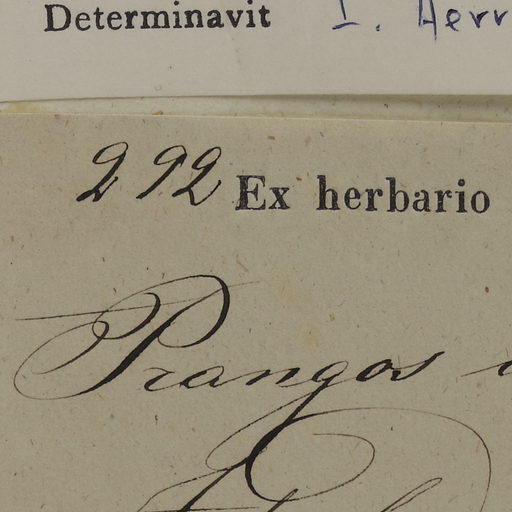 Determinavit I. Herr
292 Ex herbario
Prangos